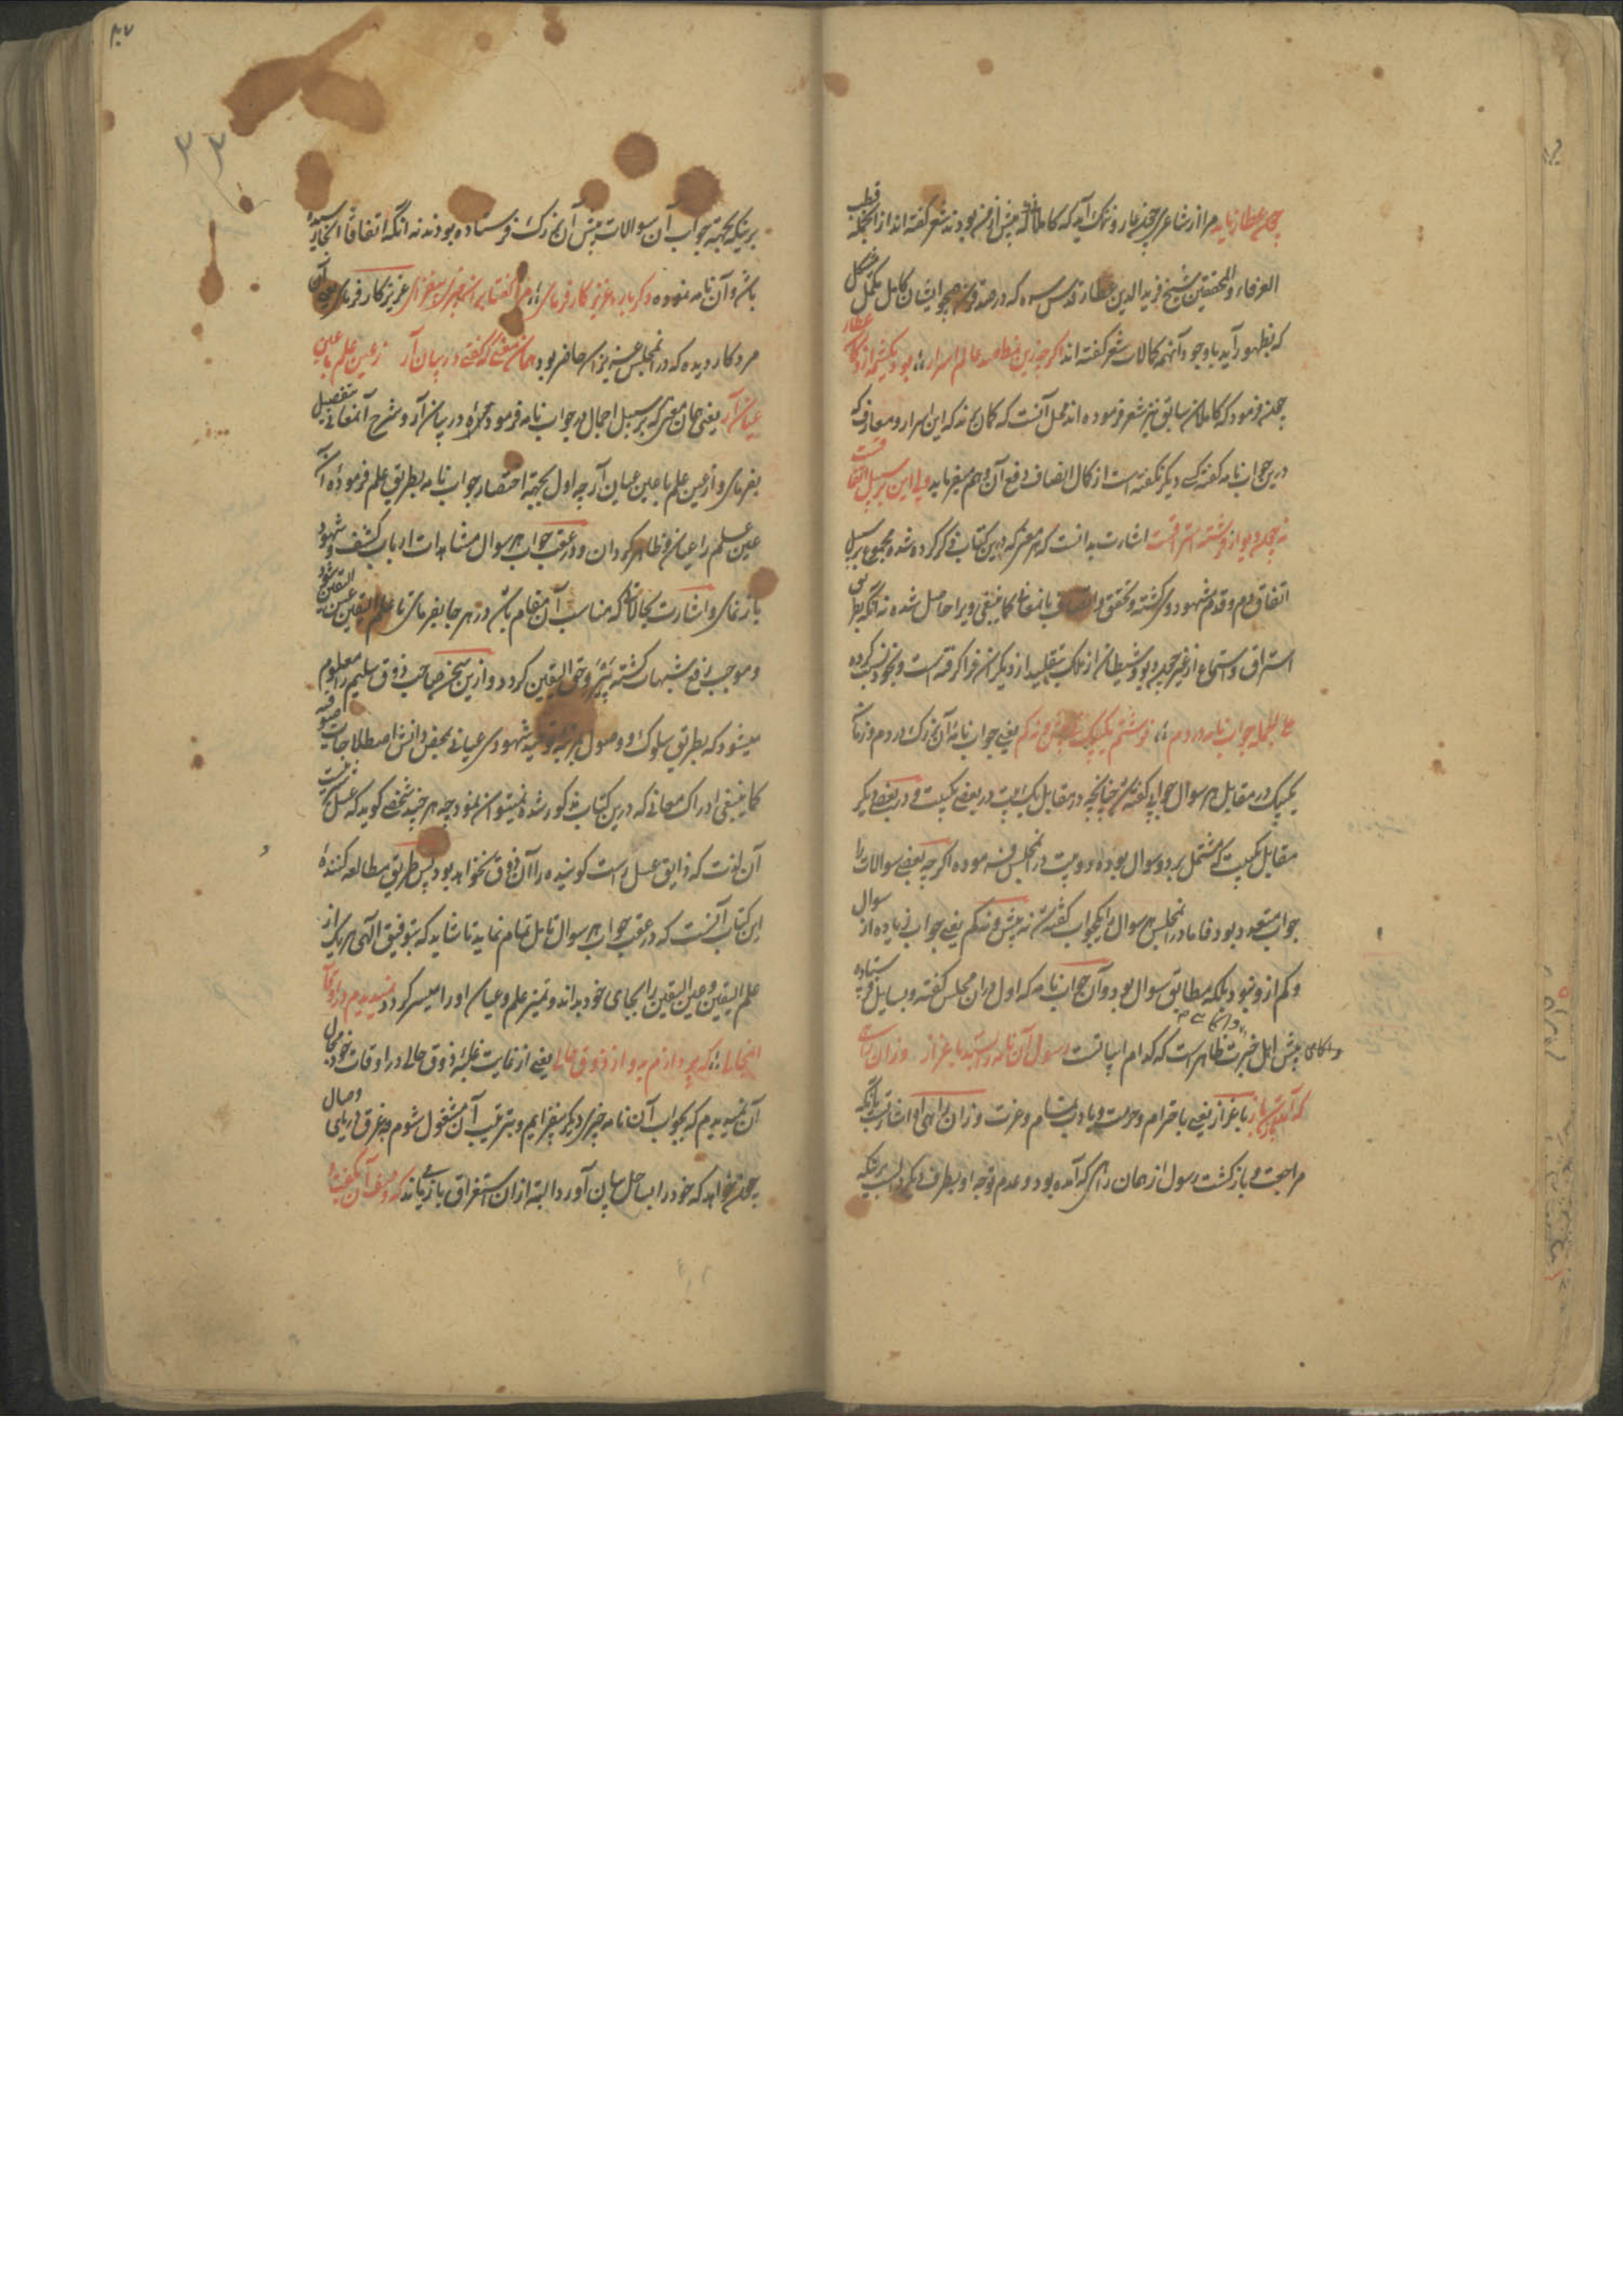 چون عطار ناید مرا از شاعری چون عار و ننگ آید که کاملان که پیش از من بودند شعر گفته اند از آنجمله قطب
العرفاء و المحققین شیخ فرید الدین عطار قدس سره که در صد قرن همچو ایشان کامل مکمل مشکل
که بظهور آید با وجود آنهمه کمالات شعر گفته اند اگرچه زین نمط صد عالم اسرار بود یکشمه از دکان عطار
چون فرمود که کاملان سابق نیز شعر فرموده اند محل آنست که گمان برند که این اسرار و معارف که
درین جواب نامه گفته کسی دیگر نگفته است از کمال انصاف دفع آن وهم میفرماید ولی این بر سبیل اتفاقست
نه چون دیو از فرشته استراقست اشارت بدانست که هر معنی که درین کتاب ذکر کرده شده مجموع بر سبیل
اتفاق دم و قدم شهود وی گشته و تحقق و اتصاف بانمعانی کما ینبغی ویرا حاصل شده نه آنکه بطریق
استراق و استماع از غیر چون دیو و شیطان از ملک بتقلید از دیگران فرا گرفته است و بخود نسبت کرده
علی الجمله جواب نامه در دم نوشتم یک بیک نه بیش و نه کم یعنی جواب نامه آن بزرگ در دم و زمان
یکیک در مقابل هر سوال جوابی گفته شد چنانچه در مقابل یک بیت در بعضی یکبیت و در بعضی دیگر
مقابل یکبیت که مشتمل بر دو سوال بوده دو بیت در آنمجلس فرموده اگرچه بعضی سوالات را
جواب متعدد بود فاما در آنمجلس هر سوال را یکجواب گفته شد نه بیش و نه کم یعنی جواب نه زیاده از سوال
و کم از و نبود بلکه مطابق سوال بود و آن جواب نامه که اول دران مجلس گفته و بسایل فرستاده
پیش اهل خبرت ظاهر است که کدام ابیاتست رسول آن نامه را بستد باعزاز وزان راهی
که آمد باز شد باز باعزاز یعنی باحترام و حرمت و یا در بتمام و عزت وزان راهی اشارتست بآنکه
مراجعت و بازگشت رسول از همان راهی که آمده بود و عدم توجه او بطرف دیگر دلیل بر آنکه
برینکه بجهة جواب آن سوالات پیش آن بزرگ فرستاده بودند نه آنکه اتفاقاً آنجا رسیده
باشد و آن نامه نموده دگر باره عزیز کارفرمای مرا گفتا بران چیزی بیفزای عزیز کارفرمای یعنی آن
مرد کار دیده که در آنمجلس عزیزان حاضر بود همان معنی که گفتی در بیان آر ز عین علم با عین
عیان آر یعنی همان معنی که بر سبیل اجمال در جواب نامه فرمودی همراه در بیان آر و شرح آنمعانی بتفصیل
بفرمای و از عین علم با عین عیان آر چه اول بجهة اختصار جواب نامه بطریق علم فرموده
عین علم را عیان و ظاهر گردان و در عقب جواب هر سوال مشاهدات ارباب کشف و شهود
باز نمای و اشارت بحالات که مناسب آن مقام باشد در هر جا بفرمای تا علم الیقین عین الیقین شود
و موجب رفع شبهات گشته یقین و حق الیقین گردد و ازین سخن صاحب ذوق سلیم را معلوم
میشود که بطریق سلوک و وصول بمرتبه توحید شهودی عیانی بمحض دانش اصطلاحات صوفیه
کما ینبغی ادراک معانی که درین کتاب مذکور شده نمیتوان نمود چه هر چند شخصی گوید که عسل
آن لذت که ذایق عسل راست گوینده را آن ذوق نخواهد بود پس طریق مطالعه کننده
این کتاب آنست که در عقب جواب هر سوال تامل تمام نماید تا شاید که بتوفیق الهی هر یک از
علم الیقین و عین الیقین را بجای خود بداند و تمیز علم و عیان او را میسر گردد نمیدیدم در اوقات
آنمجالی که پردازم بدو از ذوق حالی یعنی از غایت غلبه ذوق حالی در اوقات خود مجال
آن نمیدیدم که بجواب آن نامه چیزی دیگر بیفزایم و بترتیب آن مشغول شوم چه غرق دریای وصال
چون خواهد که خود را بساحل بیان آورد البته از آن استغراق باز ماند که وصف آن بگفت